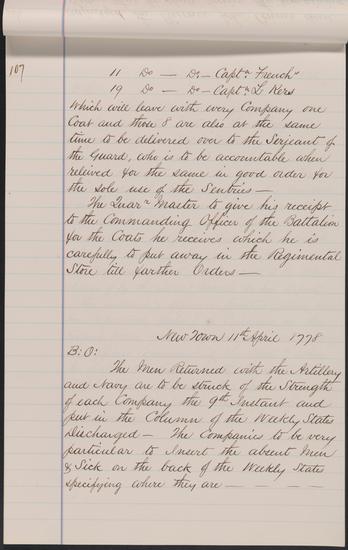 107
11 Do — Do — Captn French"
19 Do — Do — Captn L Kers
Which will leave with every Company one
Coat and those 8 are also at the same
time to be delivered over to the Serjeant of
the Guard, who is to be accountable when
relived for the same in good order for
the sole use of the Sentries —
The Quarr Master to give his receipt
to the Commanding Officer of the Battalion
for the Coats he receives which he is
carefully to put away in the Regimental
Store till farther Orders —
New Town 11th April 1778
B: O:
The Men Returned with the Artillery
and Navy are to be struck of the Strength
of each Company the 9th Instant and
put in the Column of the Weekly States
Discharged — The Companies to be very
particular to Insert the absent Men
& Sick on the back of the Weekly States
specifying where they are —